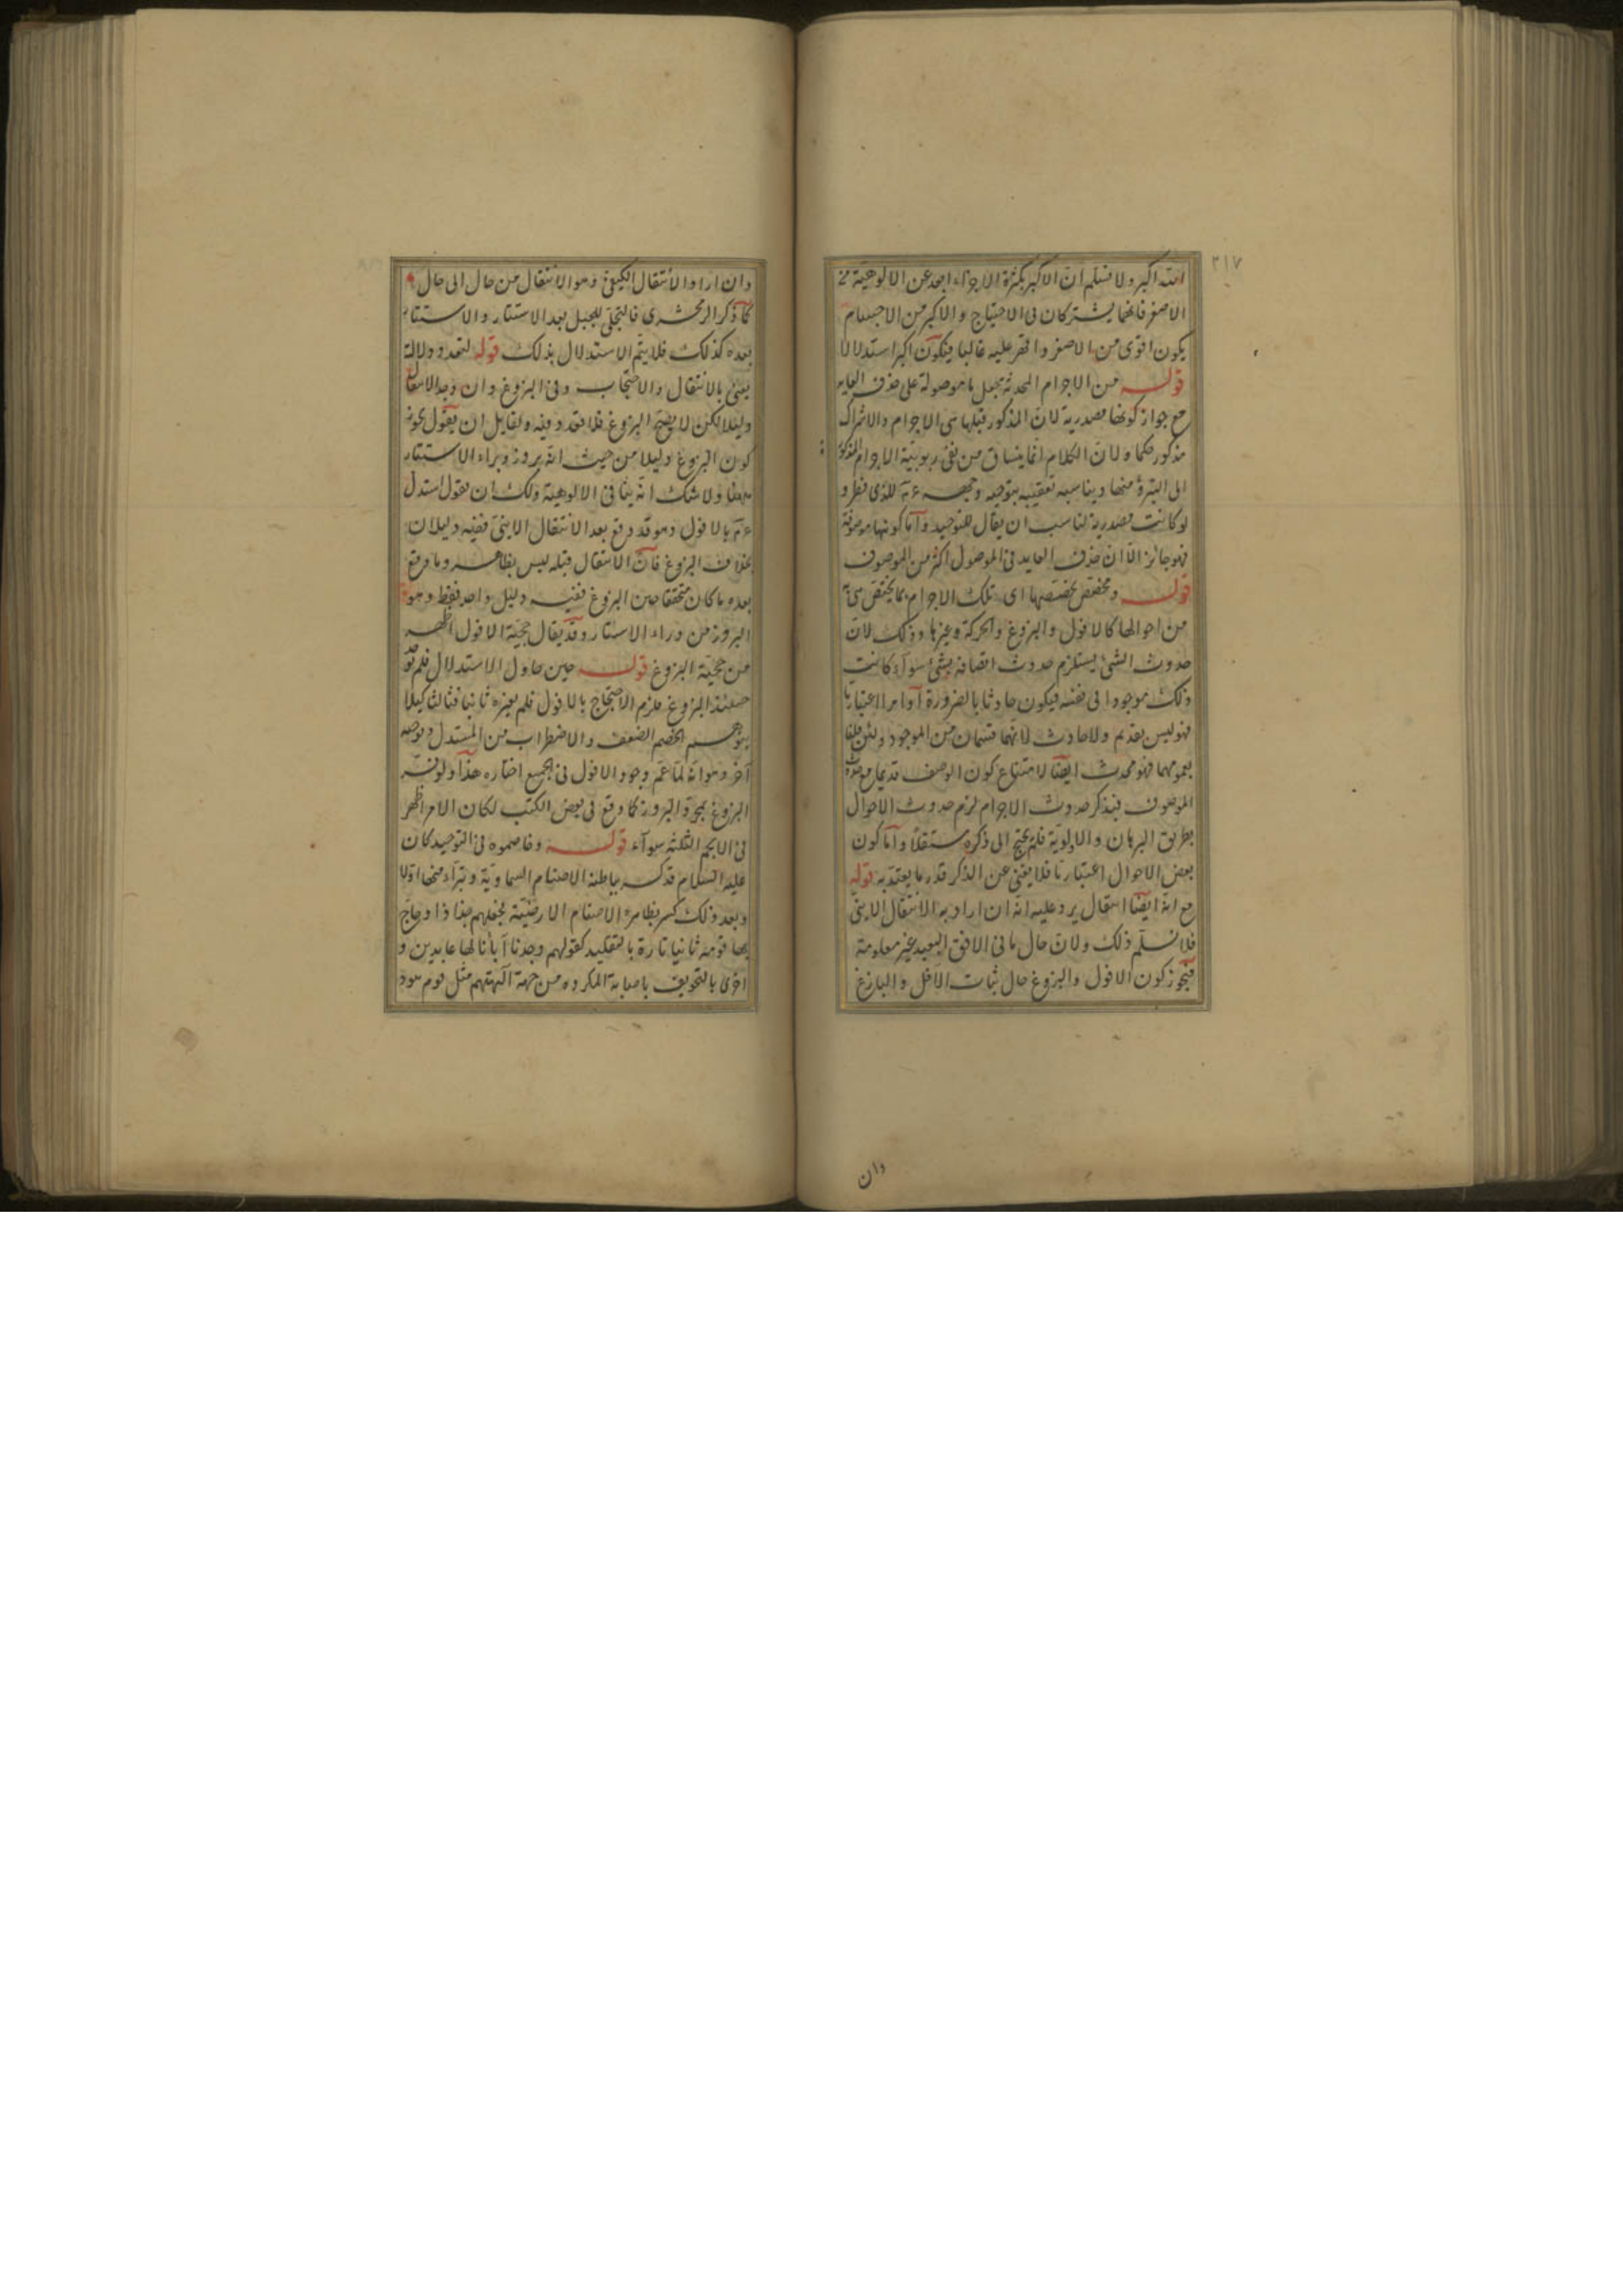 ٢١٧
الله اكبر ولا نسلم ان الاكبر بكثرة الاجزاء ابعد عن الالوهية من
الاصغر فانهما يشتركان فى الاحتياج والاكبر من الاجسام
يكون اقوى من الاصغر واقهر عليه غالبا فيكون اكبر استدلالا
قوله من الاجرام المحدثة بجعل ما موصولة على حذف العايد
مع جواز كونها مصدرية لان المذكور قبلها هى الاجرام والاشراك
مذكور حكما ولان الكلام انما ينساق من نفى ربوبية الاجرام المذكورة
الى التبرؤ منها ويناسبه تعقيبه بتوجيه وجهه للذى فطر و
لو كانت مصدرية لناسب ان يقال للتوحيد واما كونها موصوفة
فهو جائز الا ان حذف العايد فى الموصول اكثر من الموصوف
قوله ومخصص يخصصها اى تلك الاجرام بما يختص به
من احوالها كالافول والبزوغ والحركة وغيرها وذلك لان
حدوث الشئ يستلزم حدوث اتصافه بشئ سوآء كانت
ذلك موجودا فى نفسه فيكون حادثا بالضرورة او امرا اعتباريا
فهو ليس بقديم ولا حادث لانهما قسمان من الموجود ولئن قلنا
بعمومهما فهو محدث ايضا لامتناع كون الوصف قديما مع حدوث
الموصوف فبذكر حدوث الاجرام لزم حدوث الاحوال
بطريق البرهان والاولوية فلم يحتج الى ذكره مستقلا واما كون
بعض الاحوال اعتباريا فلا يغنى عن الذكر قدر ما يعتد به قوله
مع انه ايضا انتقال يرد عليه انه ان اراد به الانتقال الاينى
فلا نسلم ذلك ولان حال ما فى الافق البعيد غير معلومة
فيجوز كون الافول والبزوغ حال ثبات الافل والبازغ
وان
وان اراد الانتقال الكيفى وهو الانتقال من حال الى حال
كما ذكر الزمخشرى فالتجلى للجبل بعد الاستتار والاستتار
بعده كذلك فلا يتم الاستدلال بذلك قوله لتعدد دلالته
يعنى بالانتقال والاحتجاب وفى البزوغ وان وجد الانتقال
دليلا لكن لا يصح البزوغ فلا تعدد فيه ولقايل ان يقول يجوز
كون البزوغ دليلا من حيث انه بروز وبراء الاستتار
ايضا ولا شك انه ينافى الالوهية ولك ان تقول استدل
بالافول وهو قد وقع بعد الانتقال الاينى ففيه دليلان
بخلاف البزوغ فان الانتقال قبله ليس بظاهر وما وقع
بعده ما كان متحققا حين البزوغ ففيه دليل واحد فقط وهو
البروز من وراء الاستتار وقد يقال حجية الافول اظهر
من حجية البزوغ قوله حين حاول الاستدلال فلم يوجد
حينئذ البزوغ فلزم الاحتجاج بالافول فلم يغيره ثانيا فثالثا كيلا
يتوهم الخصم الضعف والاضطراب من المستدل وتوجيه
آخر وهو انه لما عم وجود الافول فى الجميع اختاره هذا ولو فسر
البزوغ بمجرد البروز كما وقع فى بعض الكتب لكان الامر اظهر
فى الانجم الثلثة سوآء قوله وخاصموه فى التوحيد كان
عليه السلام قد كسر بباطنه الاصنام السماوية وتبرأ منها اولا
وبعد ذلك كسر بظاهره الاصنام الارضية بجعلهم جذاذا وحاج
بها قومه ثانيا تارة بالتقليد كقولهم وجدنا آباءنا لها عابدين و
اخرى بالتخويف باصابة المكروه من جهة آلهتهم مثل قوم هود